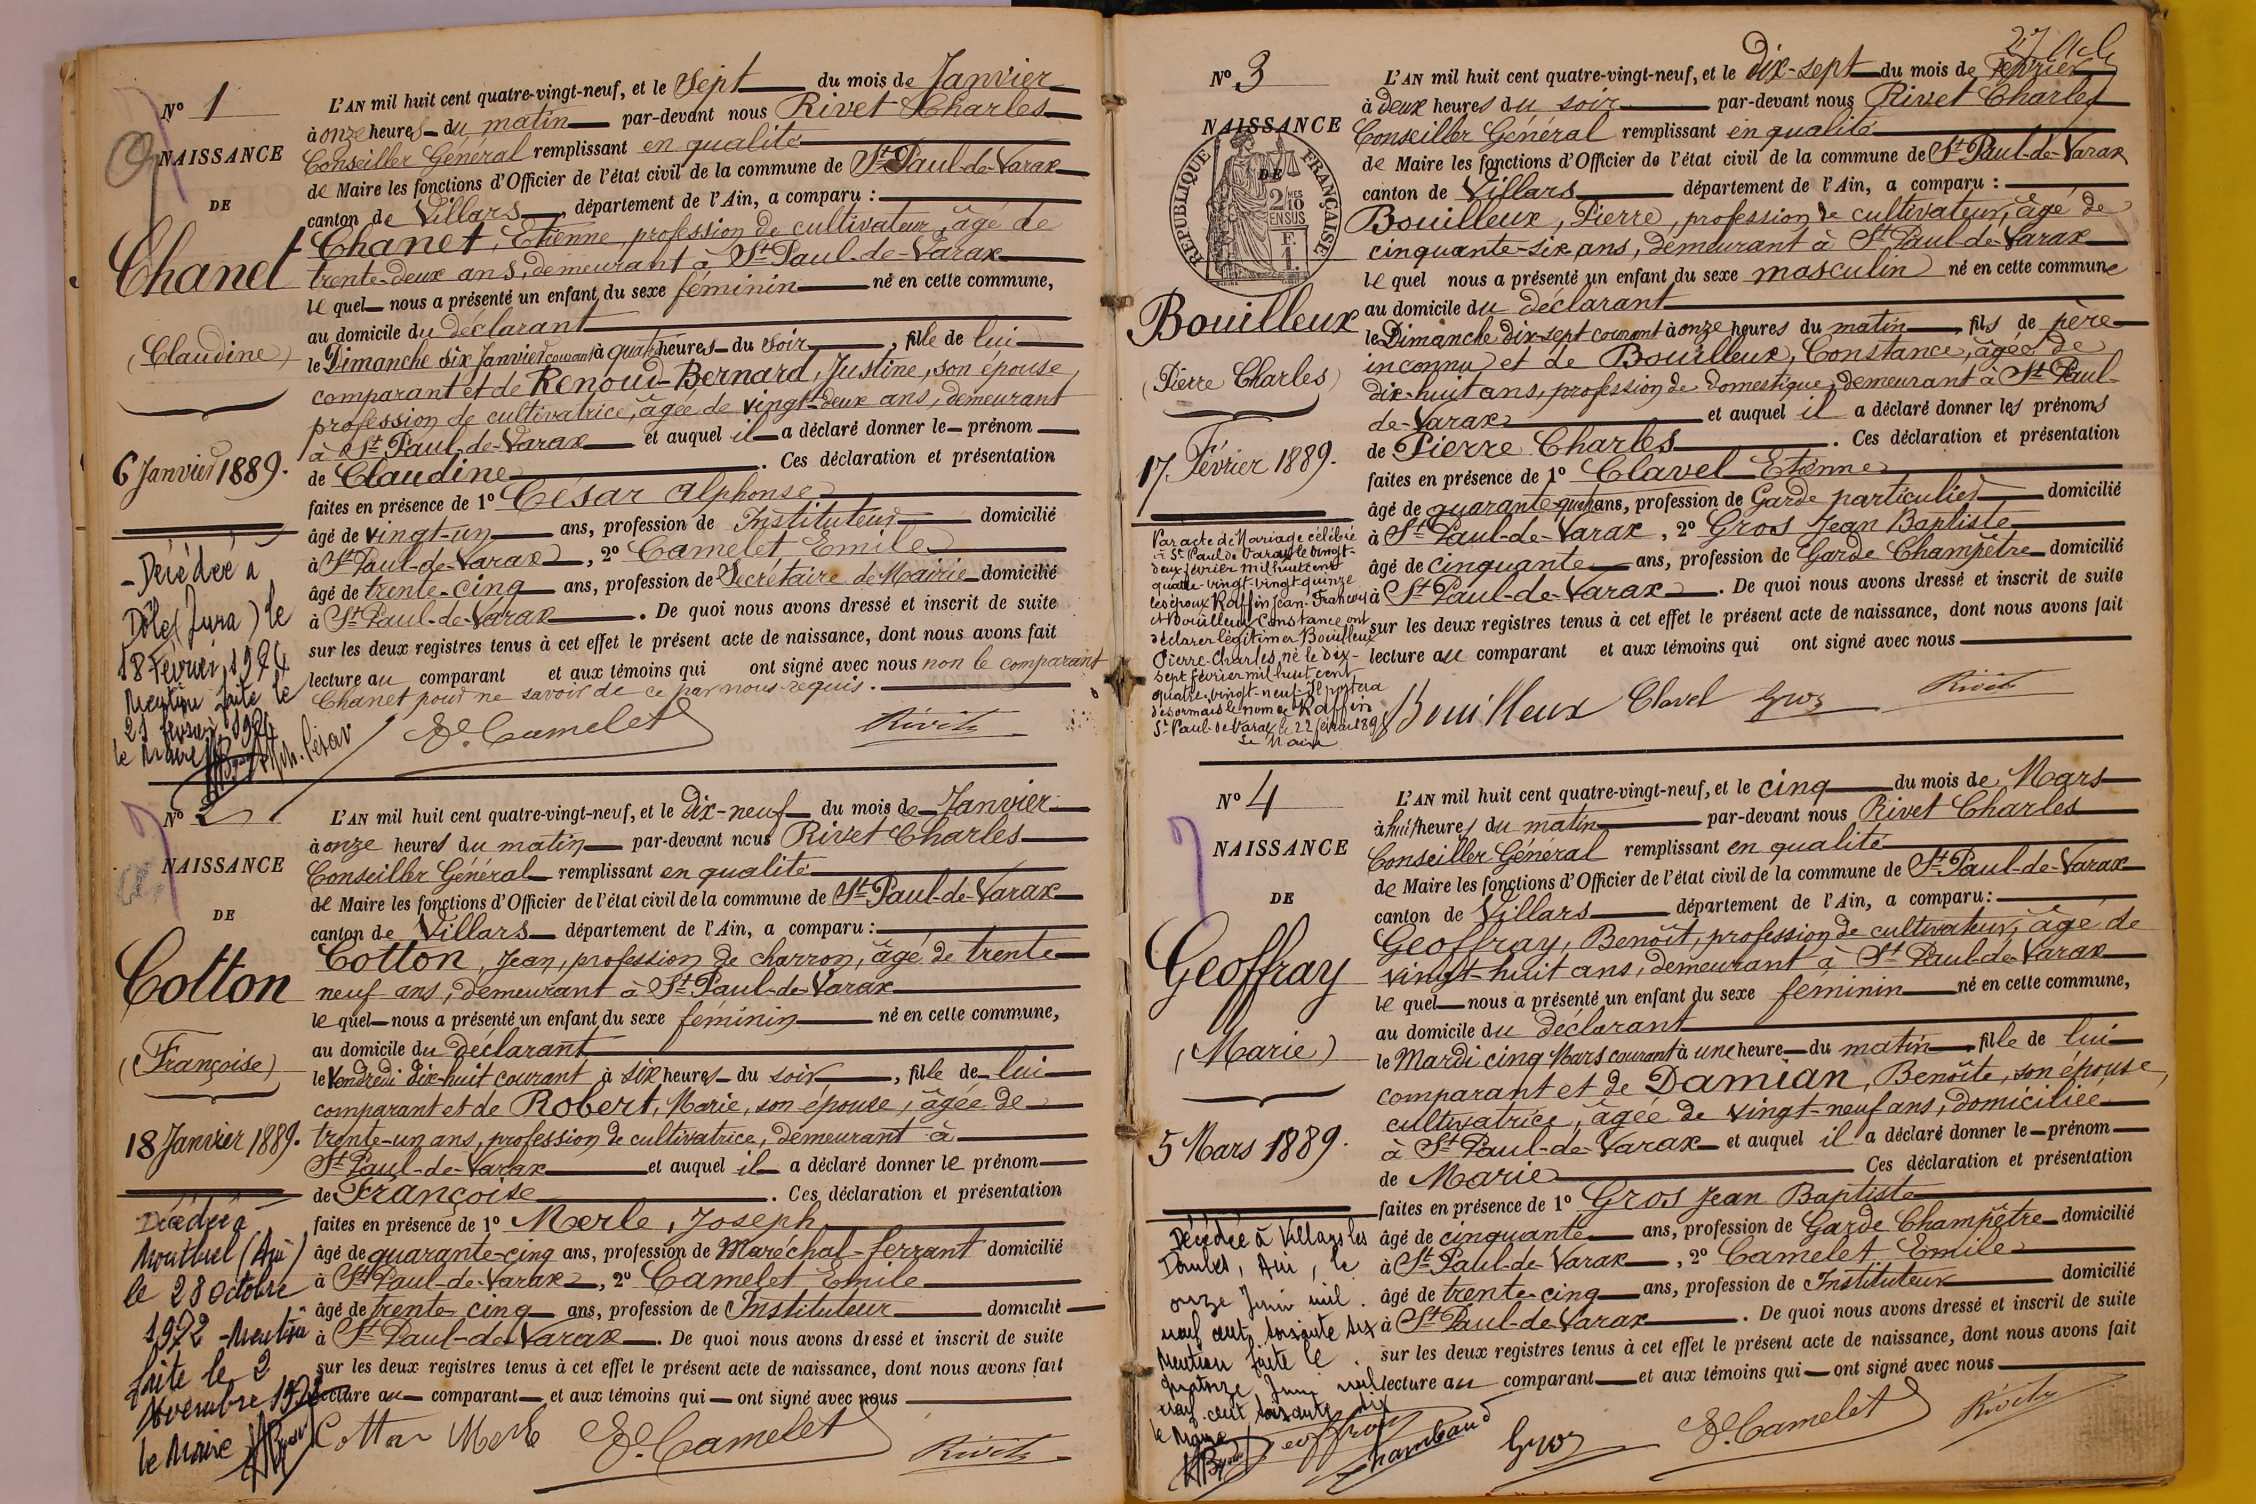 Nº 1
NAISSANCE
DE
Chanet
(Claudine)
6 Janvier 1889.
Décédée à
Dôle (Jura) le
18 Février 1974
Mention faite le
21 février 1974
le Maire
L'AN mil huit cent quatre-vingt-neuf, et le Sept du mois de Janvier
à onze heures du matin par-devant nous Rivet Charles
Conseiller Général remplissant en qualité
de Maire les fonctions d'Officier de l'état civil de la commune de St Paul-de-Varax
canton de Villars, département de l'Ain, a comparu :
Chanet, Etienne, profession de cultivateur, âgé de
trente-deux ans, demeurant à St Paul-de-Varax
le quel nous a présenté un enfant du sexe féminin né en cette commune,
au domicile du déclarant
le Dimanche six Janvier courant à quatre heures du soir, fille de lui
comparant et de Renoud-Bernard, Justine, son épouse,
profession de cultivatrice, âgée de vingt-deux ans, demeurant
à St Paul-de-Varax et auquel il a déclaré donner le prénom
de Claudine. Ces déclaration et présentation
faites en présence de 1º César Alphonse
âgé de vingt-un ans, profession de Instituteur domicilié
à St Paul-de-Varax, 2º Camelet Emile
âgé de trente-cinq ans, profession de Secrétaire de Mairie domicilié
à St Paul-de-Varax. De quoi nous avons dressé et inscrit de suite
sur les deux registres tenus à cet effet le présent acte de naissance, dont nous avons fait
lecture au comparant et aux témoins qui ont signé avec nous non le comparant
Chanet pour ne savoir de ce par nous requis.
Alph. César E. Camelet Rivet
Nº 2
NAISSANCE
DE
Cotton
(Françoise)
18 Janvier 1889.
Décédée à
Montluel (Ain)
le 28 Octobre
1972 - Mention
faite le 2
Novembre 1972
le Maire
L'AN mil huit cent quatre-vingt-neuf, et le dix-neuf du mois de Janvier
à onze heures du matin par-devant nous Rivet Charles
Conseiller Général remplissant en qualité
de Maire les fonctions d'Officier de l'état civil de la commune de St Paul-de-Varax
canton de Villars département de l'Ain, a comparu :
Cotton, Jean, profession de charron, âgé de trente
neuf ans, demeurant à St Paul-de-Varax
le quel nous a présenté un enfant du sexe féminin né en cette commune,
au domicile du déclarant
le Vendredi dix-huit courant à six heures du soir, fille de lui
comparant et de Robert, Marie, son épouse, âgée de
trente-un ans, profession de cultivatrice, demeurant à
St Paul-de-Varax et auquel il a déclaré donner le prénom
de Françoise. Ces déclaration et présentation
faites en présence de 1º Merle, Joseph
âgé de quarante-cinq ans, profession de Maréchal-ferrant domicilié
à St Paul-de-Varax, 2º Camelet Emile
âgé de trente-cinq ans, profession de Instituteur domicilié
à St Paul-de-Varax. De quoi nous avons dressé et inscrit de suite
sur les deux registres tenus à cet effet le présent acte de naissance, dont nous avons fait
lecture au comparant et aux témoins qui ont signé avec nous
Cotton Merle E. Camelet Rivet
Nº 3
NAISSANCE
DE
RÉPUBLIQUE FRANÇAISE
2/10 EN SUS
Bouilleux
(Pierre Charles)
17 Février 1889.
Par acte de Mariage célébré
à St Paul de Varax le vingt-
deux février mil huit cent
quatre-vingt-quinze
les époux Raffin Jean-François
et Bouilleux Constance ont
déclarer légitimer Bouilleux
Pierre-Charles, né le dix-
sept février mil huit cent
quatre-vingt-neuf. Il portera
désormais le nom de Raffin
St Paul-de-Varax, le 22 février 1895
Le Maire
L'AN mil huit cent quatre-vingt-neuf, et le dix-sept du mois de Février
à deux heures du soir par-devant nous Rivet Charles
Conseiller Général remplissant en qualité
de Maire les fonctions d'Officier de l'état civil de la commune de St Paul-de-Varax
canton de Villars département de l'Ain, a comparu :
Bouilleux, Pierre, profession de cultivateur, âgé de
cinquante-six ans, demeurant à St Paul-de-Varax
le quel nous a présenté un enfant du sexe masculin né en cette commune
au domicile du déclarant
le Dimanche dix-sept courant à onze heures du matin, fils de père
inconnu et de Bouilleux, Constance, âgée de
dix-huit ans, profession de domestique, demeurant à St Paul-
de-Varax et auquel il a déclaré donner les prénoms
de Pierre Charles. Ces déclaration et présentation
faites en présence de 1º Clavel Etienne
âgé de quarante-quatre ans, profession de Garde particulier domicilié
à St Paul-de-Varax, 2º Gros Jean Baptiste
âgé de cinquante ans, profession de Garde Champêtre domicilié
à St Paul-de-Varax. De quoi nous avons dressé et inscrit de suite
sur les deux registres tenus à cet effet le présent acte de naissance, dont nous avons fait
lecture au comparant et aux témoins qui ont signé avec nous
Bouilleux Clavel Gros Rivet
Nº 4
NAISSANCE
DE
Geoffray
(Marie)
5 Mars 1889.
Décédée à Villars les
Dombes, Ain, le
onze Juin mil
neuf cent soixante dix
Mention faite le
quatorze Juin mil
neuf cent soixante dix
le Maire
L'AN mil huit cent quatre-vingt-neuf, et le cinq du mois de Mars
à huit heures du matin par-devant nous Rivet Charles
Conseiller Général remplissant en qualité
de Maire les fonctions d'Officier de l'état civil de la commune de St Paul-de-Varax
canton de Villars département de l'Ain, a comparu :
Geoffray, Benoît, profession de cultivateur, âgé de
vingt-huit ans, demeurant à St Paul-de-Varax
le quel nous a présenté un enfant du sexe féminin né en cette commune,
au domicile du déclarant
le Mardi cinq Mars courant à une heure du matin, fille de lui
comparant et de Damian, Benoîte, son épouse,
cultivatrice, âgée de vingt-neuf ans, domiciliée
à St Paul-de-Varax et auquel il a déclaré donner le prénom
de Marie Ces déclaration et présentation
faites en présence de 1º Gros Jean Baptiste
âgé de cinquante ans, profession de Garde Champêtre domicilié
à St Paul-de-Varax, 2º Camelet Emile
âgé de trente-cinq ans, profession de Instituteur domicilié
à St Paul-de-Varax. De quoi nous avons dressé et inscrit de suite
sur les deux registres tenus à cet effet le présent acte de naissance, dont nous avons fait
lecture au comparant et aux témoins qui ont signé avec nous
Geoffray Chambaud Gros E. Camelet Rivet